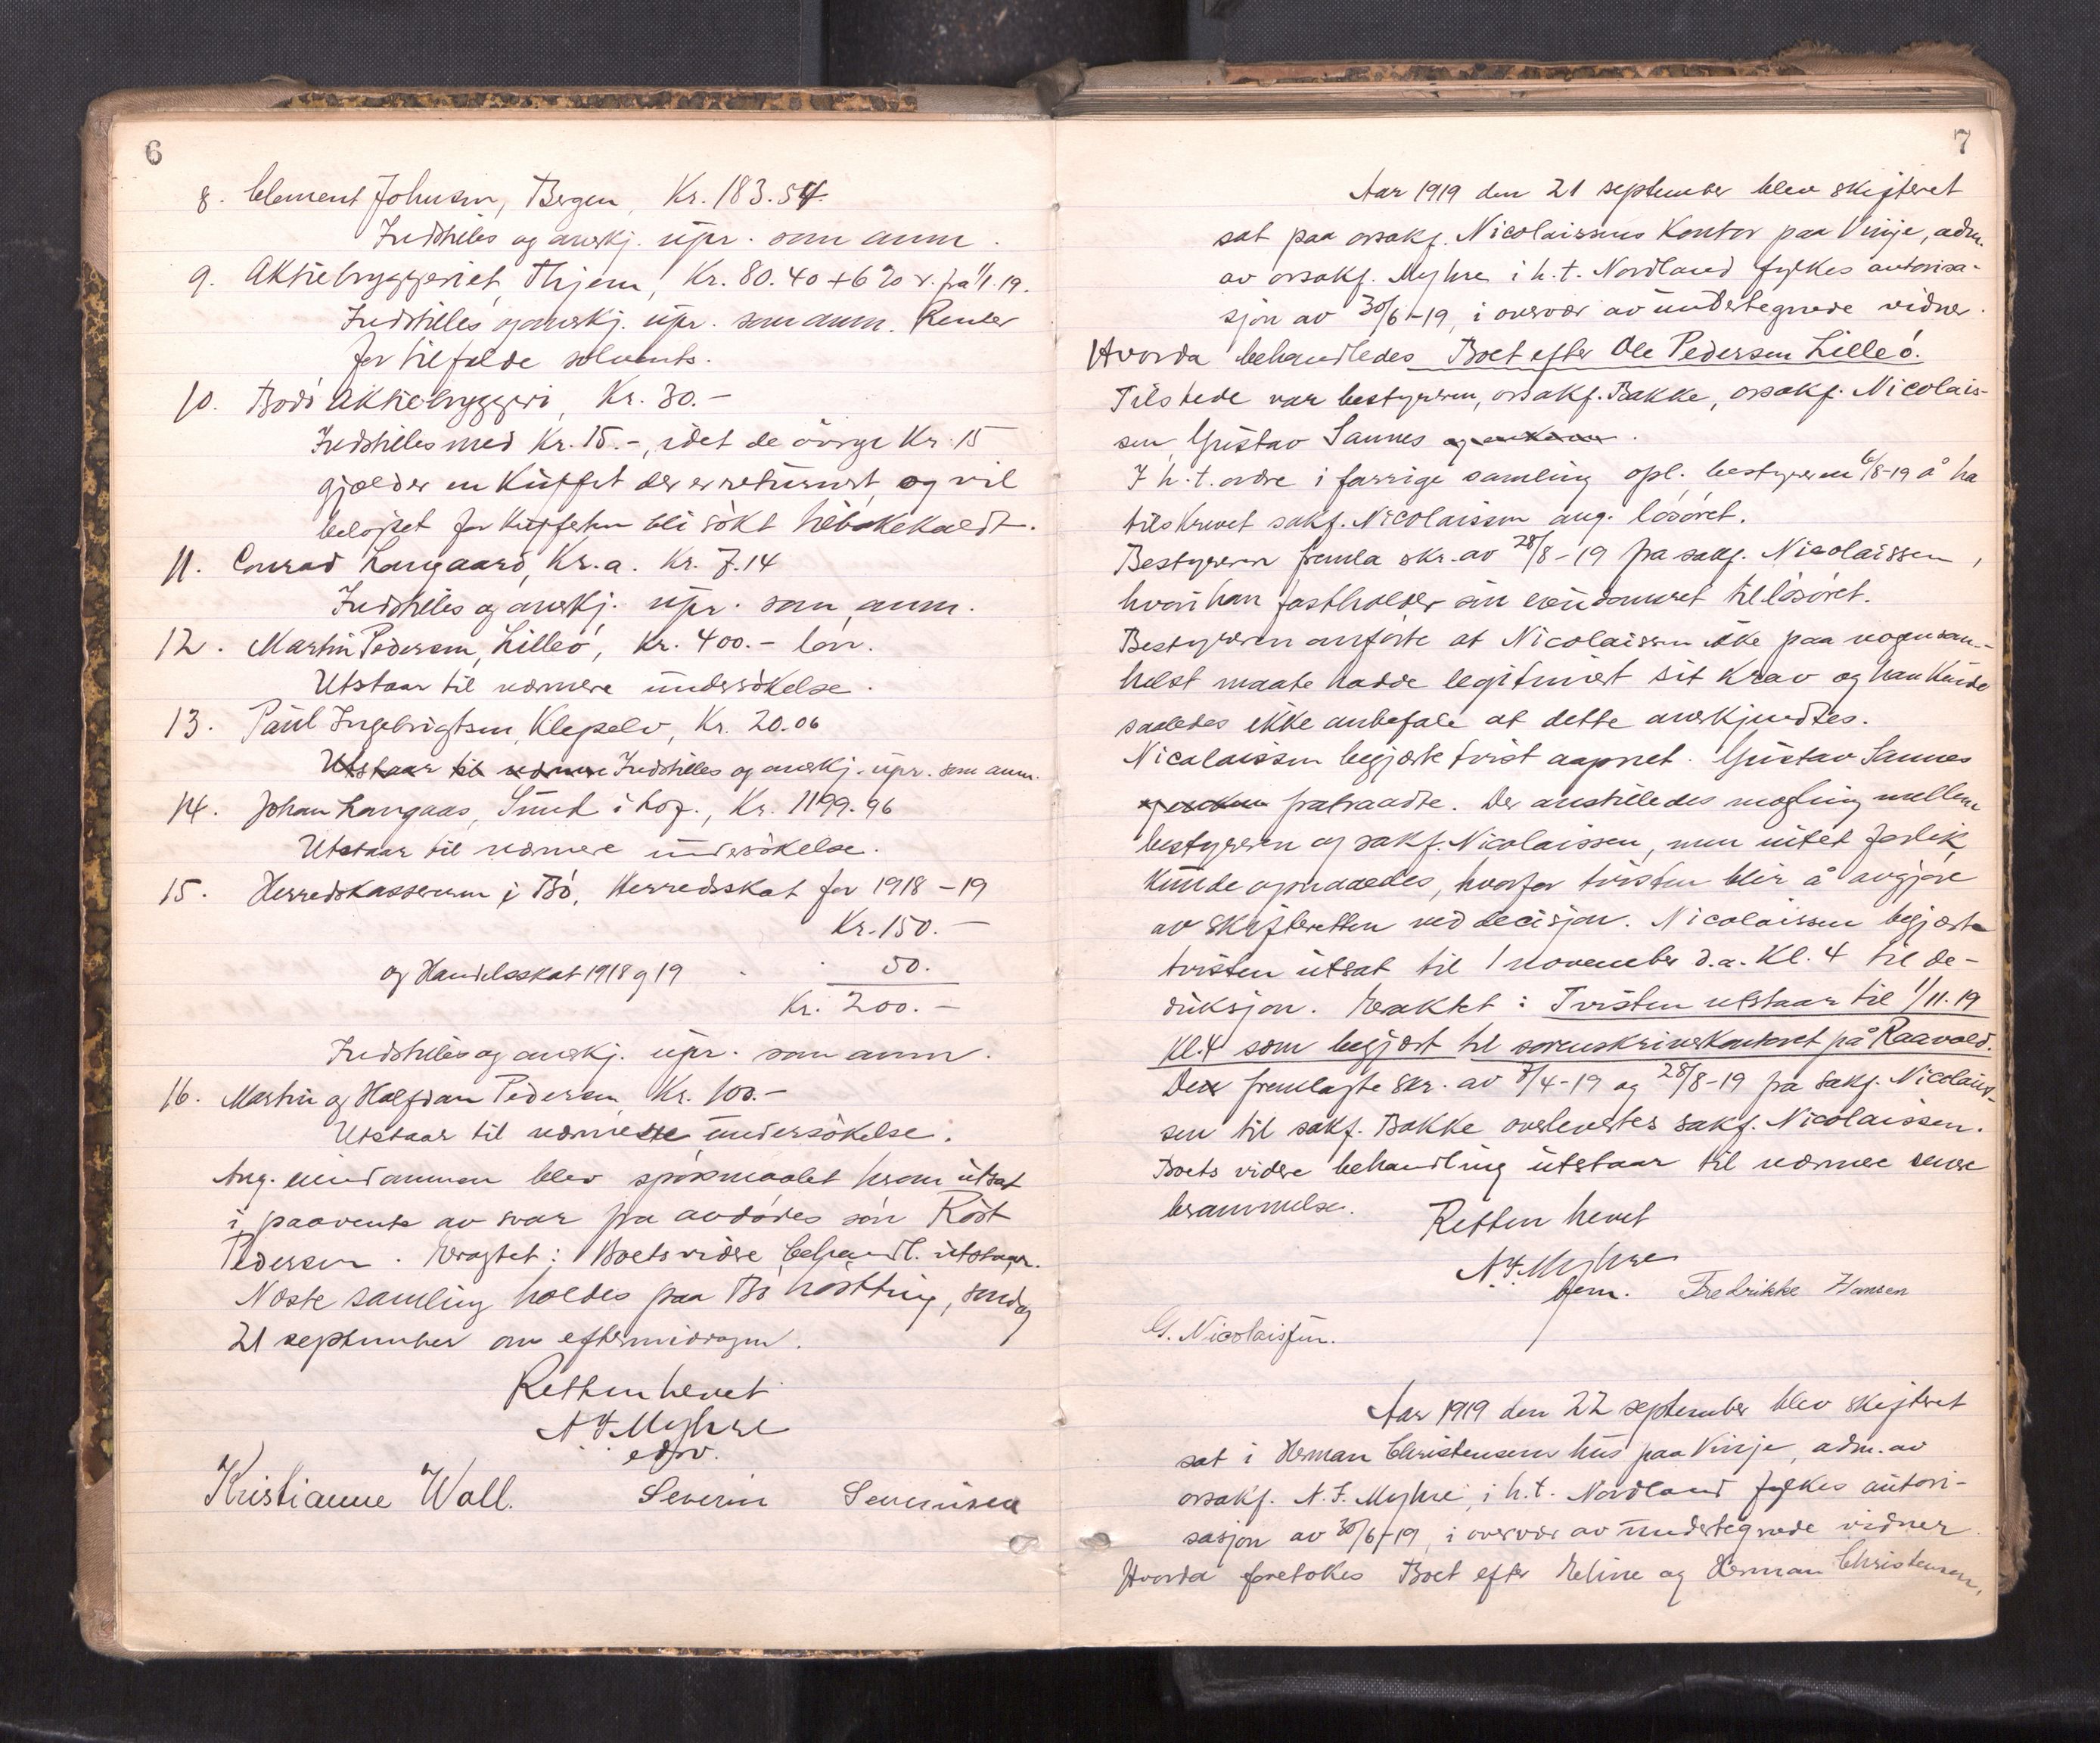 6
8. Clement Johnsen, Bergen, Kr. 183.54.
Indstilles og anerkj. upr. som anm.
9. Aktiebryggeriet, Thjem, Kr. 80.40 + 6% r. fra 1/1.19.
Indstilles og anerkj. upr. som anm. Renter
for tilfælde solvents.
10. Bodö Aktiebryggeri, Kr. 30.-
Indstilles med Kr. 15.-, idet de övrige Kr. 15
gjælder en Kuffert der er returnert, og vil
belöpet for kufferten bli sökt tilbakekaldt.
11. Conrad Langaard, Kr.a. Kr. 7.14
Indstilles og anerkj. upr. som anm.
12. Martin Pedersen, Lilleö, Kr. 400.- lön.
Utstaar til nærmere undersökelse.
13. Paul Ingebrigtsen, Klepelv, Kr. 20.06
Utstaar til nærmere Indstilles og anerkj. upr. som anm.
14. Johan Langaas, Sund i Lof., Kr. 1199.96
Utstaar til nærmere undersökelse.
15. Herredskassereren i Bö, Herredsskat for 1918-19
Kr. 150.-
og Handelsskat 1918 g 19 50.
Kr. 200.-
Indstilles og anerkj. upr. som anm.
16. Martin og Halfdan Pedersen Kr. 100.-
Utstaar til nærmere undersökelse.
Ang. eiendommen blev spörsmaalet herom utsat
i paavente av svar fra avdödes sön Röst
Pedersen. Eragtet: Boets videre behandl. utstaar.
Næste samling holdes paa Bö höstting, söndag
21 september om eftermiddagen.
Retten hevet
N F Myhre
edsv.
Kristianne Woll. Severin Severinsen
7
Aar 1919 den 21 september blev skifteret
sat paa orsakf. Nicolaissens Kontor paa Vinje, adm.
av orsakf. Myhre i h.t. Nordland fylkes autorisa-
sjon av 30/6-19, i overvær av undertegnede vidner.
Hvorda behandledes Boet efter Ole Pedersen Lilleö.
Tilstede var bestyreren, orsakf. Bakke, orsakf. Nicolais-
sen, Gustav Sannes og enken.
I h.t. ordre i forrige samling opl. bestyreren 6/8-19 å ha
tilskrevet sakf. Nicolaissen ang. lösöret.
Bestyreren fremla skr. av 28/8-19 fra sakf. Nicolaissen,
hvori han fastholder sin eiendomsret til lösöret.
Bestyreren anförte at Nicolaissen ikke paa nogen som-
helst maate hadde legitimert sit krav og han kunde
saaledes ikke anbefale at dette anerkjendtes.
Nicolaissen begjærte tvist aapnet. Gustav Sannes
og enken fratraadte. Der anstilledes mægling mellem
bestyreren og sakf. Nicolaissen, men intet forlik
kunde opnaaedes, hvorfor tvisten blir å avgjöre
av skifteretten ved decisjon. Nicolaissen begjærte
tvisten utsat til 1 november d.a. Kl. 4 til de-
duksjon. Eraktet: Tvisten utstaar til 1/11.19
Kl. 4 som begjært til sorenskriverkontoret på Raavold.
Den fremlagte skr. av 7/4-19 og 28/8-19 fra sakf. Nicolais-
sen til sakf. Bakke overlevertes sakf. Nicolaissen.
Boets videre behandling utstaar til nærmere senere
berammelse.
Retten hevet
N. F. Myhre
bem. Fredrikke Hansen
G. Nicolaissen.
Aar 1919 den 22 september blev skifteret
sat i Herman Christensens hus paa Vinje, adm. av
orsakf. N. F. Myhre, i h.t. Nordland fylkes autori-
sasjon av 30/6-19, i overvær av undertegnede vidner.
Hvorda foretokes Boet efter Eline og Herman Christensen,